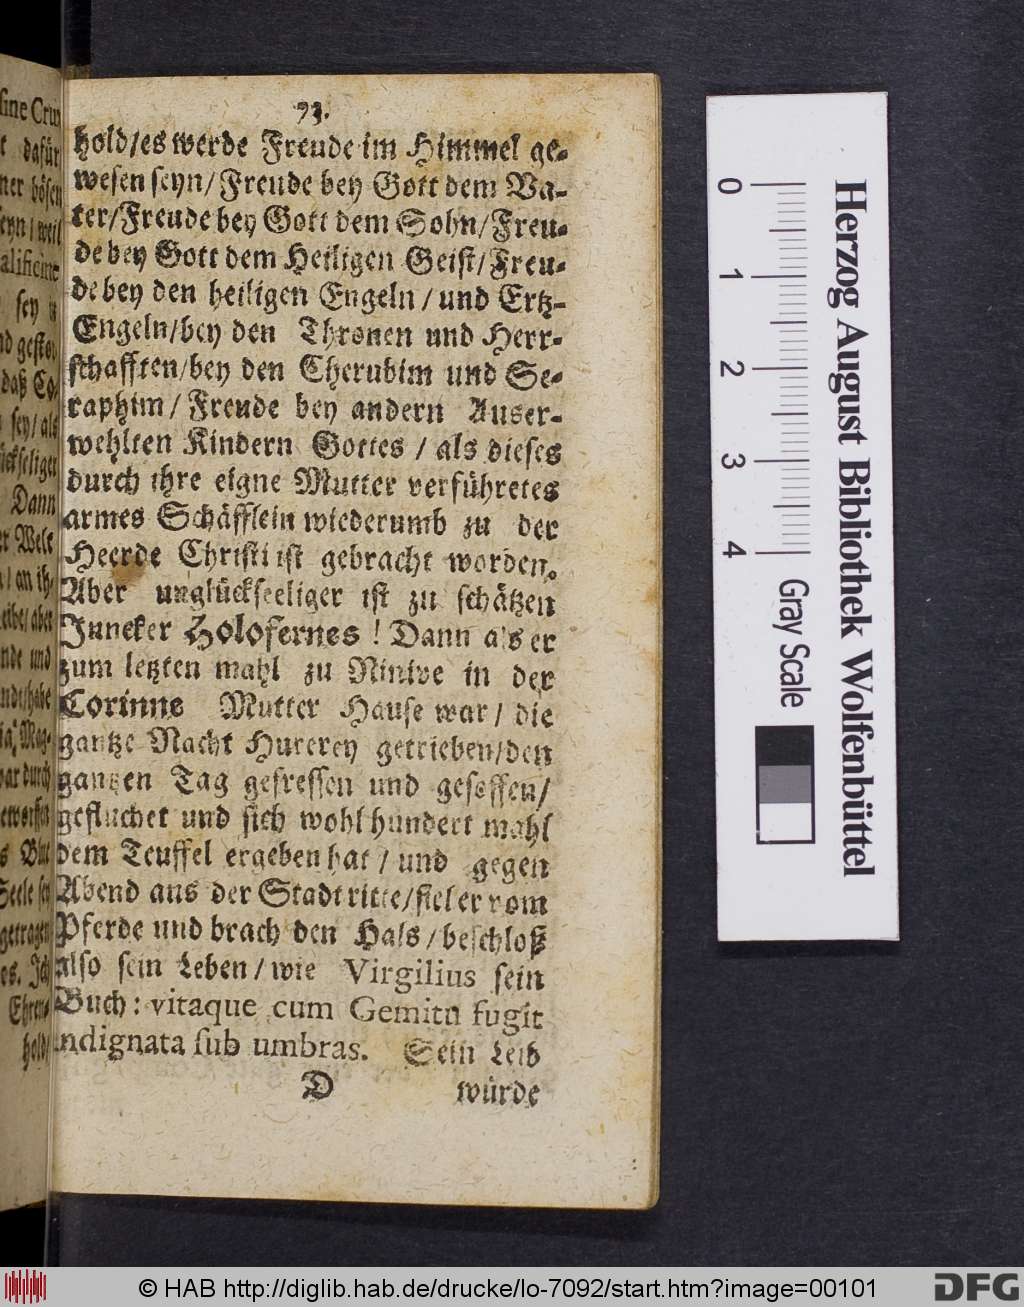 73.
hold/es werde Freude im Himmel ge-
wesen seyn/Freude bey Gott dem Va-
ter/Freude bey Gott dem Sohn/Freu-
de bey Gott dem Heiligen Geist/Freu-
de bey den heiligen Engeln/und Ertz-
Engeln/bey den Thronen und Herr-
schafften/bey den Cherubim und Se-
raphim/Freude bey andern Auser-
wehlten Kindern Gottes/als dieses
durch ihre eigne Mutter verführetes
armes Schäfflein wiederumb zu der
Heerde Christi ist gebracht worden.
Aber unglückseeliger ist zu schätzen
Juncker Holofernes! Dann als er
zum letzten mahl zu Ninive in der
Corinne Mutter Hause war/die
gantze Nacht Hurerey getrieben/den
gantzen Tag gefressen und gesoffen/
gefluchet und sich wohl hundert mahl
dem Teuffel ergeben hat/und gegen
Abend aus der Stadt ritte/fiel er vom
Pferde und brach den Hals/beschloß
also sein Leben/wie Virgilius sein
Buch: vitaque cum Gemitu fugit
indignata sub umbras. Sein Leib
D würde
sine Cru
dafür
ner bösen
seyn/weil
sey
daß Co-
sey/als
Dann
er Welt
an ih-
leibe/aber
nde und
war durch
getragen
es. Ich
Ehren-
hold/
0 1 2 3 4
Gray Scale
Herzog August Bibliothek Wolfenbüttel
© HAB http://diglib.hab.de/drucke/lo-7092/start.htm?image=00101
DFG